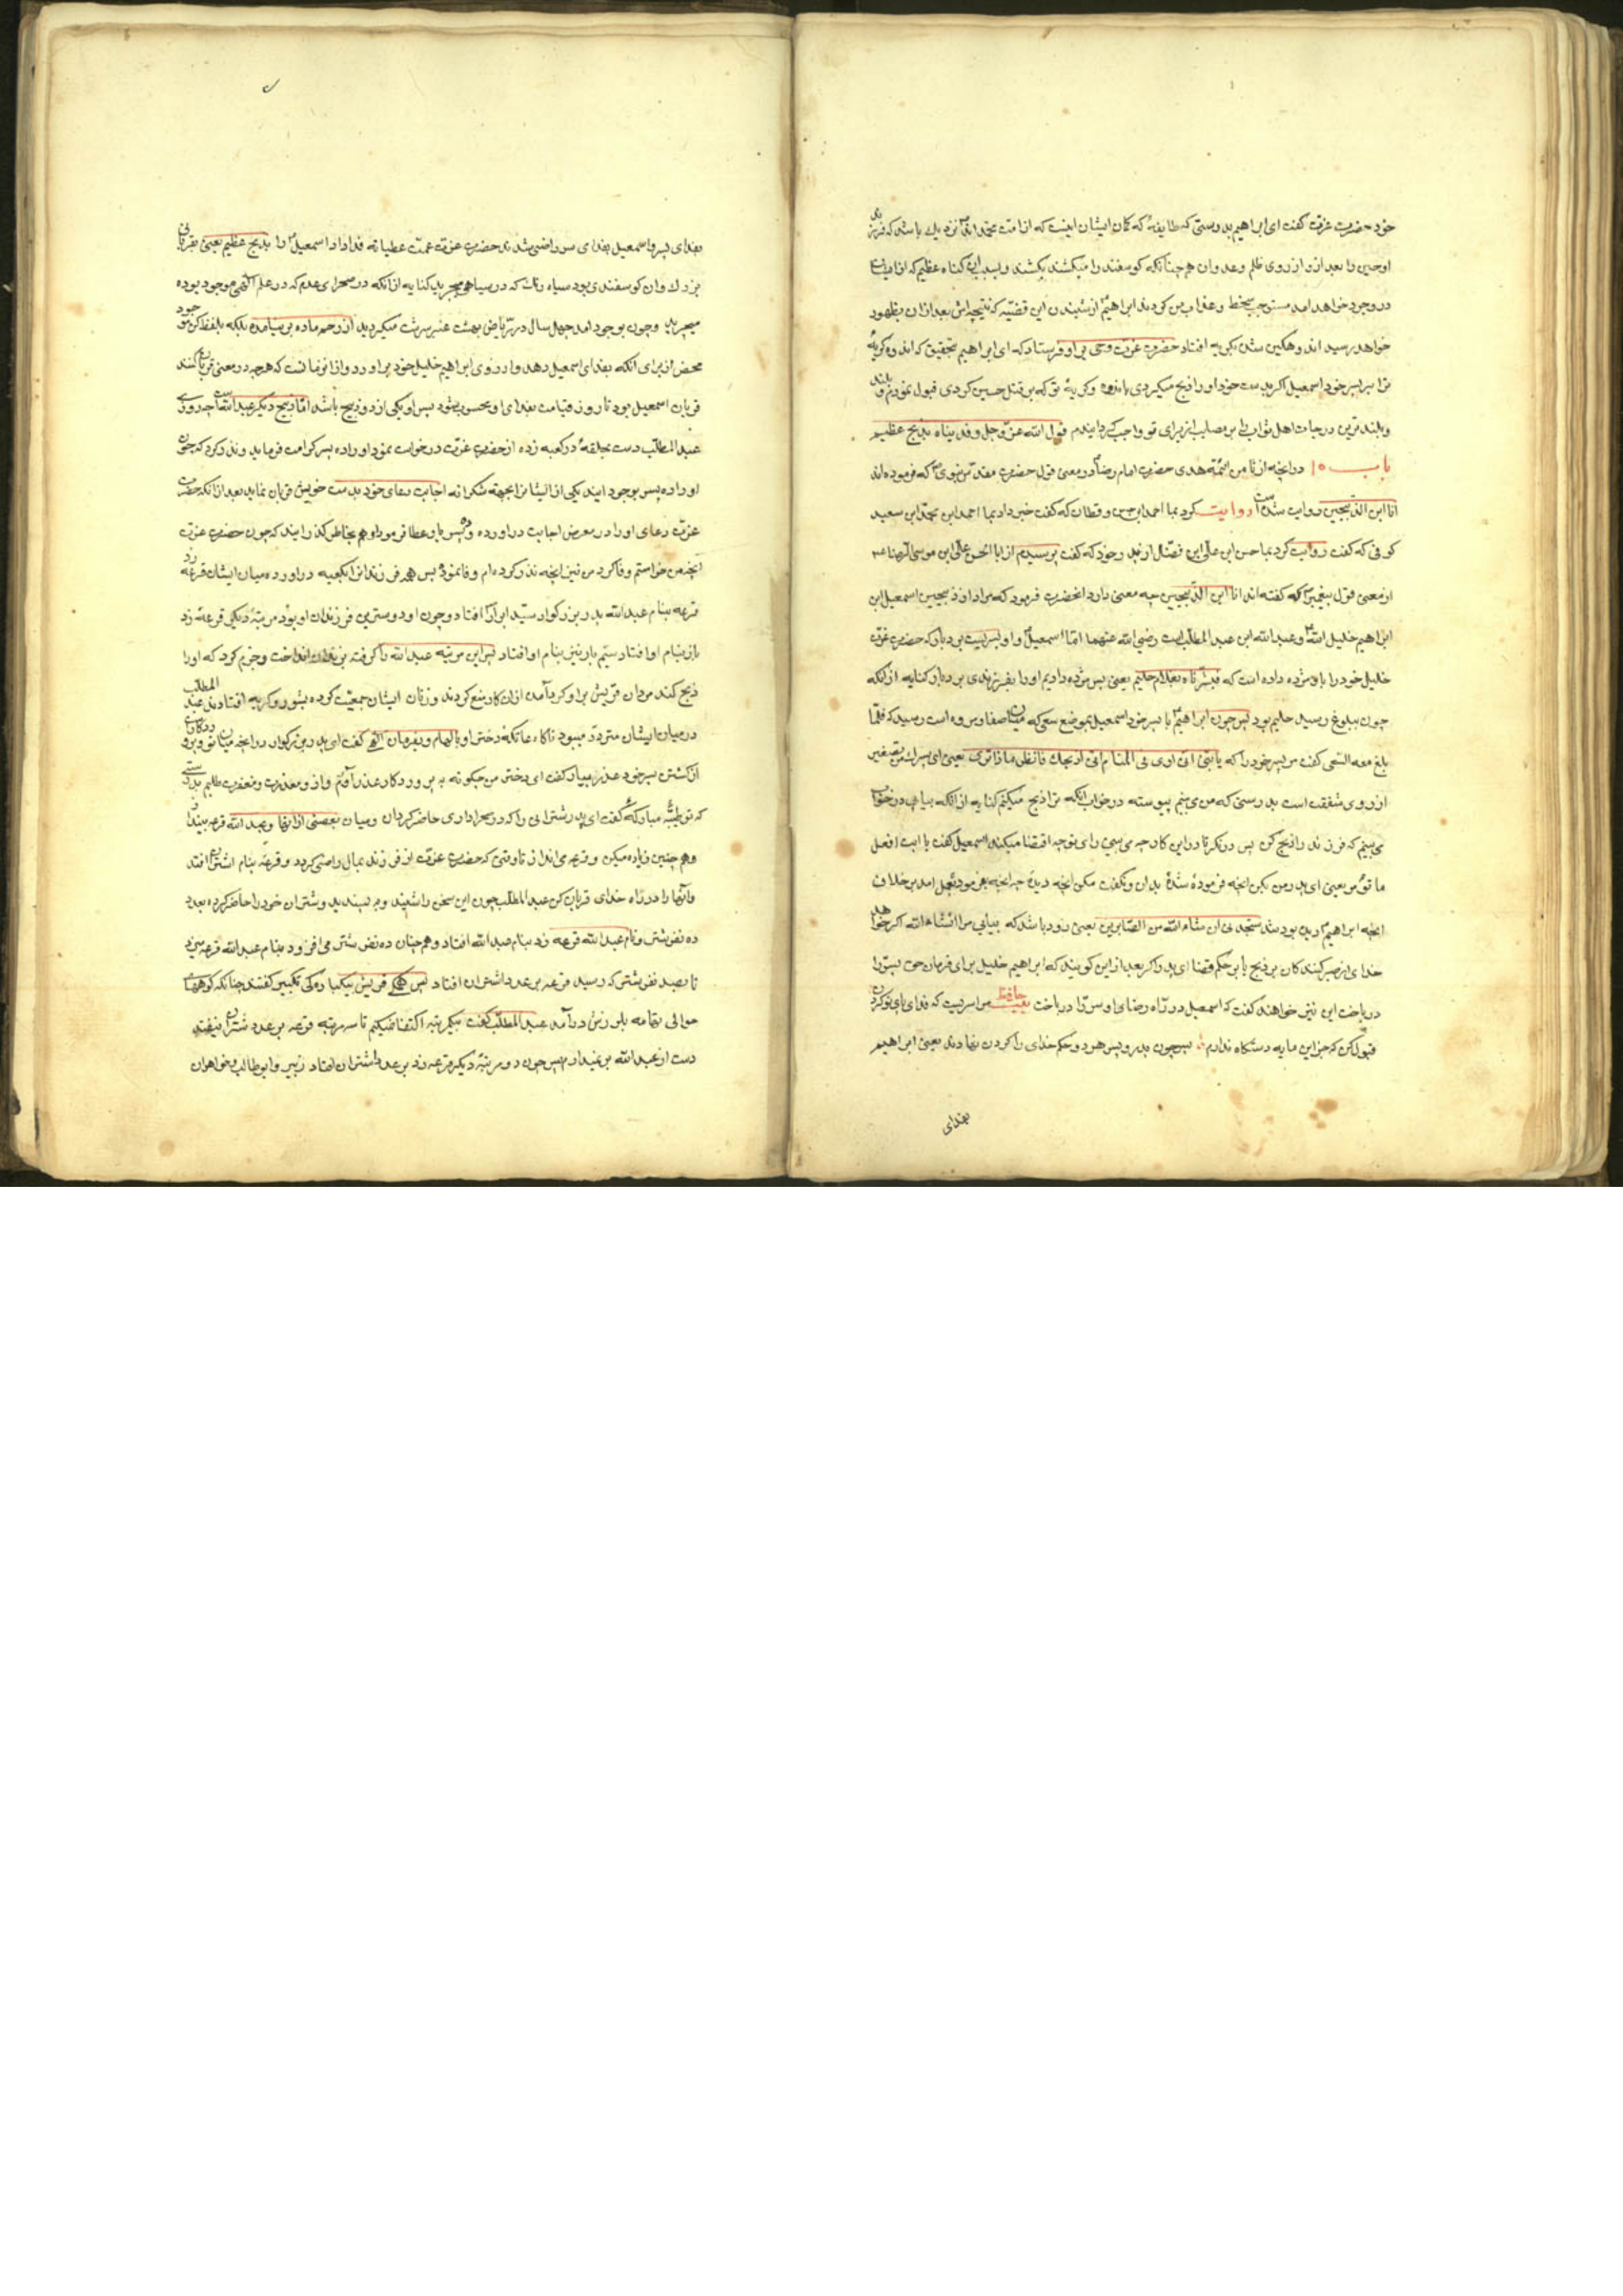 خود حضرت عزت گفت ای ابراهیم بدرستی که طایفهٔ که کمان ایشان اینست که از امت محمد اند نزدیک باشد که فرزند
او حسین را بعد از او از روی ظلم و عدوان هم چنانکه کوسفند را میکشند بکشند و بسبب این کناه عظیم که از ایشان
در وجود خواهد امد مستوجب سخط و عذاب من کردند ابراهیم از شنیدن این قضیه که نتیجه اش بعد از ان بظهور
خواهد رسید اندوهکین شده بکریه افتاد حضرت عزت وحی براو فرستاد که ای ابراهیم بتحقیق که اندوه و کریهٔ
ترا بر پسر خود اسمعیل اکر بدست خود او را ذبح میکردی باندوه و کریهٔ تو که بر قتل حسین کردی قبول نمودم و بلند
و بلند ترین درجات اهل ثواب را بر مصایب از برای تو واجب کردانیدم قول الله عز و جل و فدیناه بذبح عظیم
باب ۱۵ در انچه از ثامن ائمه هدی حضرت امام رضا در معنی قول حضرت مقدس نبوی که فرموده اند
انا ابن الذبیحین روایت شده است روایت کرد بما احمد ابن حسن قطان که گفت خبر داد بما احمد ابن محمد ابن سعید
کوفی که گفت روایت کرد بما حسن ابن علی ابن فضال از پدر خود که گفت پرسیدم از ابا الحسن علی ابن موسی الرضا
از معنی قول پیغمبر که گفته اند انا ابن الذبیحین چه معنی دارد انحضرت فرمود که مراد از ذبیحین اسمعیل ابن
ابراهیم خلیل الله و عبد الله ابن عبد المطلب است رضی الله عنهما اما اسمعیل و او پسریست بردبار که حضرت عزت
خلیل خود را باو مژده داده است که فبشرناه بغلام حلیم یعنی پس مژده دادیم او را بفرزندی بردبار کنایه از انکه
چون ببلوغ رسید حلیم بود پس چون ابراهیم با پسر خود اسمعیل بموضع سعی که میان صفا و مروه است رسید که فلما
بلغ معه السعی گفت مر پسر خود را که یا بنی انی اری فی المنام انی اذبحک فانظر ماذا تری یعنی ای پسرک من تصغیر
از روی شفقت است بدرستی که من می بینم پیوسته در خواب انکه ترا ذبح میکنم کنایه از انکه بیاپی در خواب
می بینم که فرزند را ذبح کن پس در نکر تا در این کار چه می بینی رای تو چه اقتضا میکند اسمعیل گفت یا ابت افعل
ما تؤمر یعنی ای پدر من بکن انچه فرمودهٔ شدهٔ بدان و نکفت مکن انچه دیدهٔ چه انچه بفرمود بعمل امد بر خلاف
انچه ابراهیم دیده بود ستجدنی ان شاء الله من الصابرین یعنی زود باشد که بیابی مرا انشاء الله اکر خواهد
خدای از صبر کنندکان بر ذبح یا بر حکم قضا ای پدر
دریافت این نیز خواهند گفت که اسمعیل در راه رضای او سر را درباخت حافظ مرا سریست که فدای پای تو کردن
قبول کن که جز این مایه دستکاه ندارم پس چون پدر و پسر هر دو حکم خدای را کردن نهادند یعنی ابراهیم
بفدای
بفدای پسر و اسمعیل بفدای سر راضی شدند حضرت عزت عمت عطیاته فدا داد اسمعیل را بذبح عظیم یعنی بقربانی
بزرک و ان کوسفندی بود سیاه رنک که در سیاهی میچرید کنایه از انکه در صحرای عدم که در علم الهی موجود بوده
میچرید و چون بوجود امد چهل سال در ریاض بهشت عنبر سرشت میکردید از رحم ماده بر نیامده بلکه بلفظ کن موجود
محض از برای انکه بفدای اسمعیل دهد و از روی ابراهیم خلیل خود براورد و از انزمانست که هرچه در معنی قربان کنند
قربان اسمعیل بود تا روز قیامت بفدای او محسوب شود پس او یکی از دو ذبیح باشد اما ذبیح دیکر عبد الله است چه روزی
عبد المطلب دست بحلقهٔ در کعبه زده از حضرت عزت درخواست نمود او را ده پسر کرامت فرماید و نذر کرد که چون
او را ده پسر بوجود ایند یکی از ایشان را بجهته شکرانه اجابت دعای خود بدست خویش قربان نماید بعد از انکه حضرت
عزت دعای او را در معرض اجابت دراورده ده پسر باو عطا فرمود او هم بخاطر کذرانید که چون حضرت عزت
انچه من خواستم وفا کرد من نیز انچه نذر کرده ام وفا نمود پس هر فرزندان را بکعبه دراورده میان ایشان قرعه زد
قرعه بنام عبد الله پدر بزرکوار سید ابرار افتاد و چون او دوسترین فرزندان او بود مرتبهٔ دیکر قرعه زد
باز بنام او افتاد سیم بار نیز بنام او افتاد پس این مرتبه عبد الله را کرفته بزندان انداخت و جزم کرد که او را
ذبح کند مردان قریش براو کرد آمده از ان کار منع کردند و زنان ایشان جمعیت کرده بشور و کریه افتادند عبد المطلب
در میان ایشان متردد میبود ناکاه عاتکه دختر او بالهام و بفرمان الهی گفت ای پدر بزرکوار در انچه میان تو و پروردکار
از کشتن پسر خود عذر بیار گفت ای دختر من چکونه به پروردکار عذر آورم و از و معذرت و مغفرت طلبم بدرستی
که تو طیبه مبارکه گفت ای پدر شترانی را که در صحرا داری حاضر کردان و میان بعضی از انها و عبد الله قرعه بینداز
و هم چنین زیاده میکن و قرعه می انداز تا وقتی که حضرت عزت از فرزند بمال راضی کردد و قرعه بنام اشتران افتد
و انها را در راه خدای قربان کن عبد المطلب چون این سخن را شنید و به پسندید و شتران خود را حاضر کرده بعدد
ده نفر شتر و نام عبد الله قرعه زد بنام عبد الله افتاد و هم چنان ده نفر شتر می افزود و بنام عبد الله قرعه میزد
تا بصد نفر شتر که رسید قرعه بر عدد اشتران افتاد پس همکی قریش بیکباره کی تکبیر گفتند چنانکه کوههای
حوالی تهامه بلرزش درآمد عبد المطلب گفت بیکمرتبه اکتفا نمیکنم تا سه مرتبه قرعه بر عدد شتران نیفتد
دست از عبد الله بر نمیدارم پس چون دو مرتبهٔ دیکر قرعه زد بر عدد اشتران افتاد زبیر و ابو طالب و خواهران